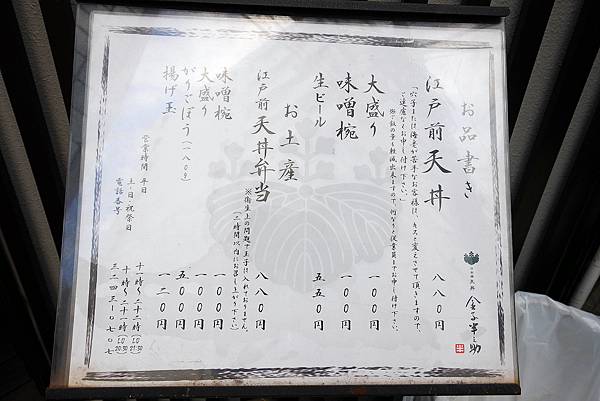 お品書き
江戸前天丼 八八〇円
「穴子または海老が苦手なお客様は、キスと変えさせて頂きますので、
ご遠慮なくお申し付け下さい。」
大盛り 一〇〇円
味噌椀 一〇〇円
生ビール 五五〇円
お土産
江戸前天丼弁当 八八〇円
※衛生上の問題で玉子は入れておりません。
(二時間以内にお召し上がり下さい)
味噌椀 一〇〇円
大盛り 一〇〇円
がりごぼう(一八〇g) 五〇〇円
揚げ玉 一二〇円
営業時間 平日 十一時~二十二時(LO 21:30)
土・日・祝祭日 十一時~二十一時(LO 20:30)
電話番号 三二四三-〇七〇七
日本橋天丼 金子半之助